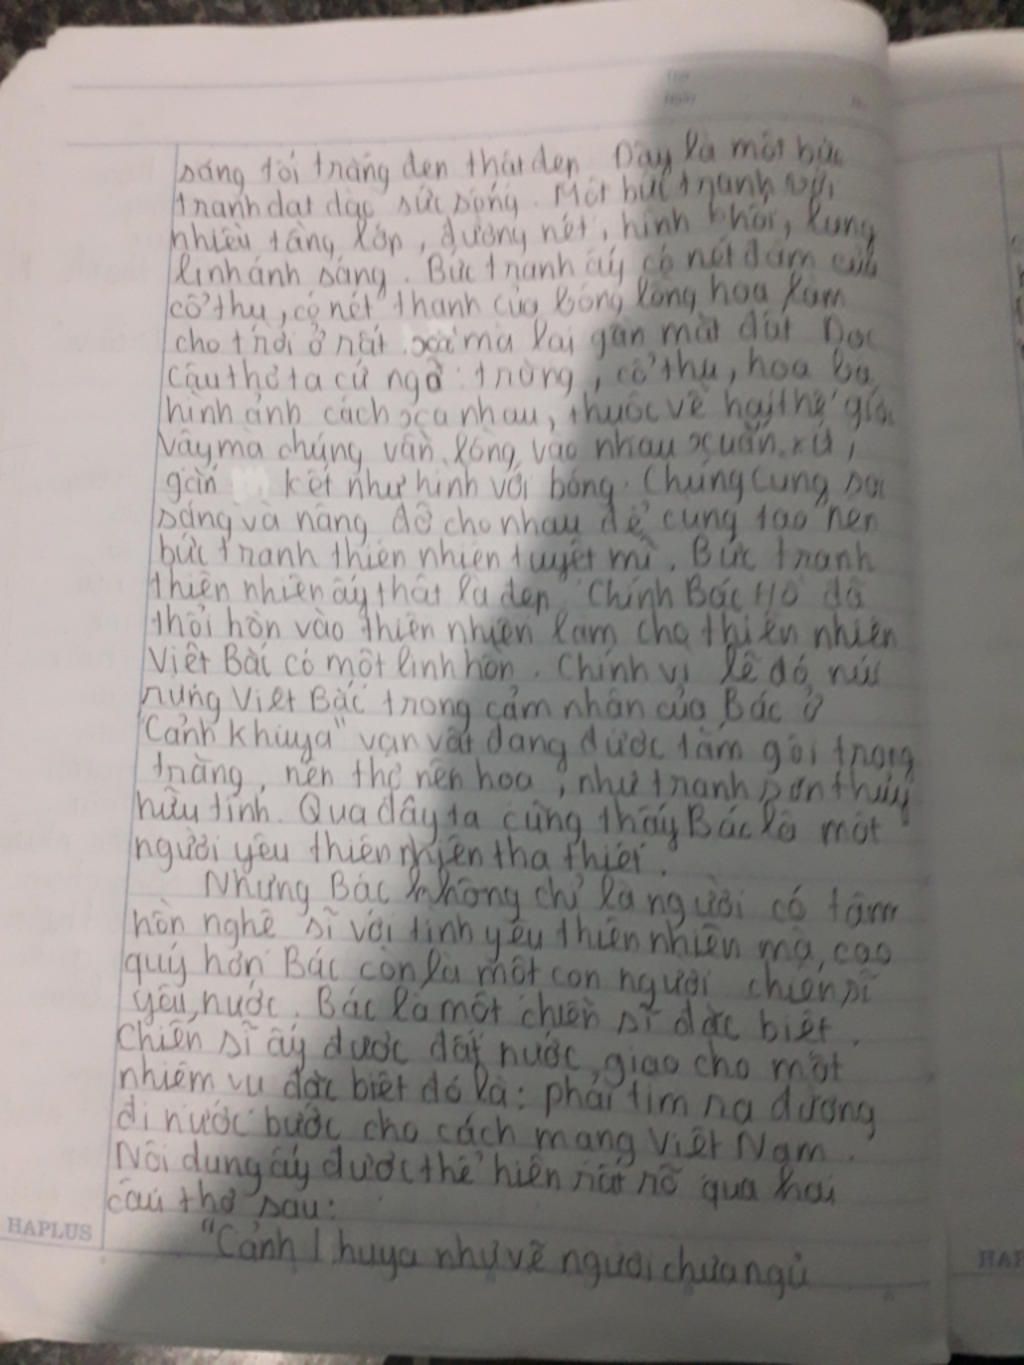 sáng tối trăng đen thật đẹp Đây là một bức
tranh dạt dào sức sống. Một bức tranh với
nhiều tầng lớp, đường nét, hình khối, lung
linh ánh sáng. Bức tranh ấy có nét đậm của
cổ thụ, có nét thanh của bóng lồng hoa làm
cho trời ở rất xa mà lại gần mặt đất Đọc
câu thơ ta cứ ngỡ: trăng, cổ thụ, hoa là
hình ảnh cách xa nhau, thuộc về hai thế giới
vậy mà chúng vẫn lồng vào nhau xuấn xú,
gắn kết như hình với bóng. Chúng cùng soi
sáng và nâng đỡ cho nhau để cùng tạo nên
bức tranh thiên nhiên tuyệt mĩ. Bức tranh
thiên nhiên ấy thật là đẹp. Chính Bác Hồ đã
thổi hồn vào thiên nhiên làm cho thiên nhiên
Việt Bắc có một linh hồn. Chính vì lẽ đó, núi
rừng Việt Bắc trong cảm nhận của Bác ở
"Cảnh khuya" vạn vật đang được tắm gội trong
trăng, nên thơ nên hoa, như tranh sơn thủy
hữu tình. Qua đây ta cũng thấy Bác là một
người yêu thiên nhiên tha thiết.
Nhưng Bác không chỉ là người có tâm
hồn nghệ sĩ với tình yêu thiên nhiên mà, cao
quý hơn Bác còn là một con người chiến sĩ
yêu nước. Bác là một chiến sĩ đặc biệt.
Chiến sĩ ấy được đất nước giao cho một
nhiệm vụ đặc biệt đó là: phải tìm ra đường
đi nước bước cho cách mạng Việt Nam.
Nội dung ấy được thể hiện rất rõ qua hai
câu thơ sau:
HAPLUS
"Cảnh khuya như vẽ người chưa ngủ